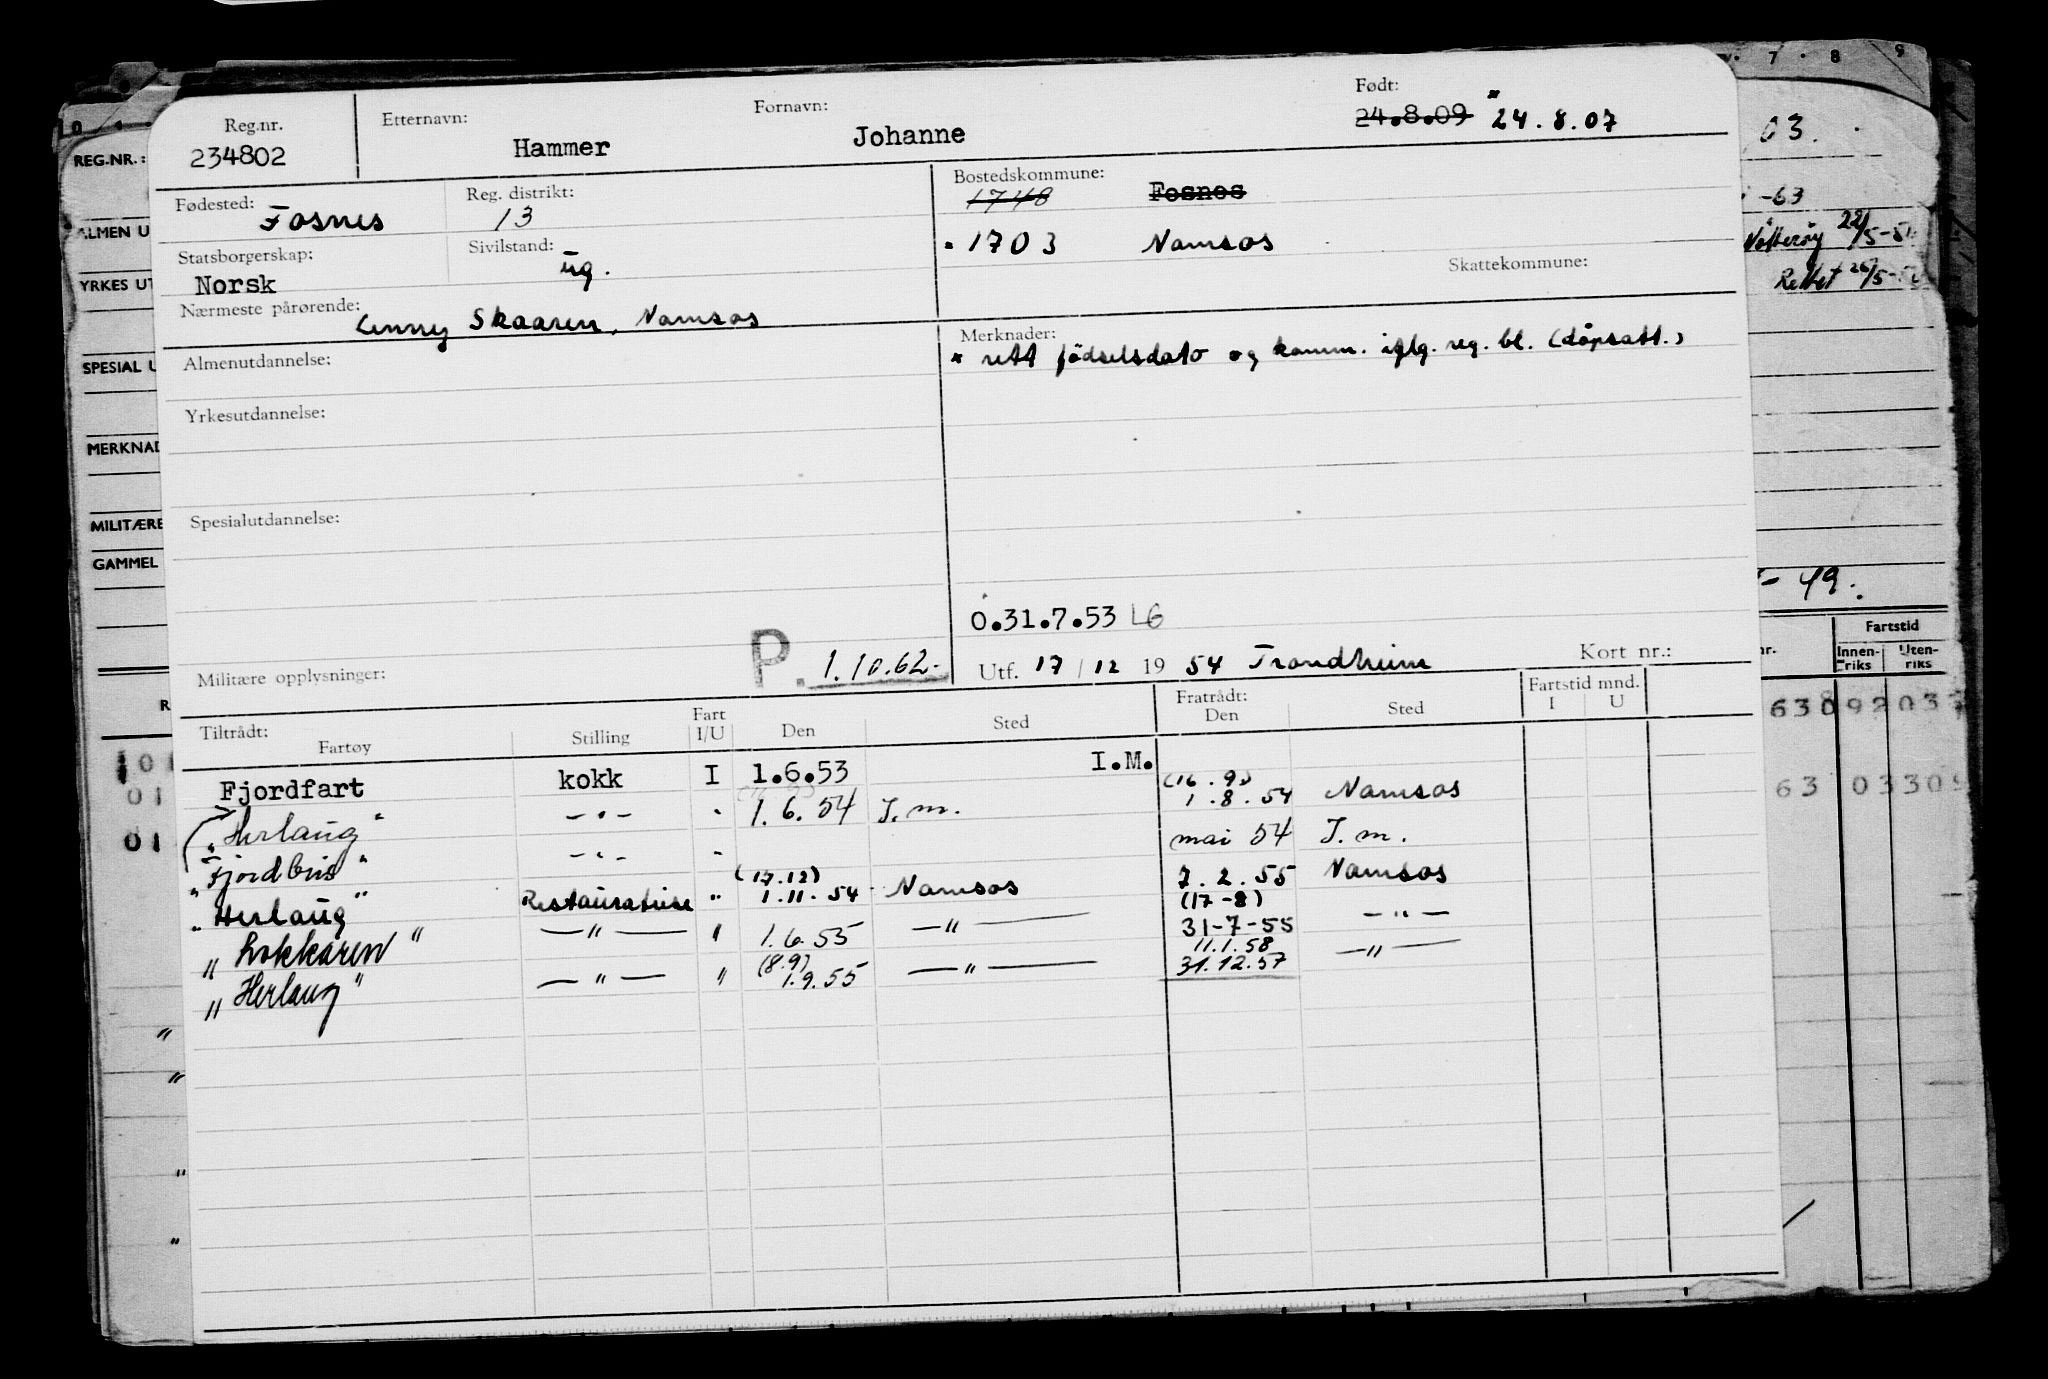 Reg.nr. Etternavn: Fornavn: Født:
234802 Hammer Johanne 24.8.09 * 24.8.07
Fødested: Fosnes Reg. distrikt: 13 Bostedskommune: 1748 Fosnes
Statsborgerskap: Norsk Sivilstand: ug. 1703 Namsos
Skattekommune:
Nærmeste pårørende: Skaaren, Namsos
Almenutdannelse:
Merknader:
* rett födselsdato og komm. iflg. reg. bl. (dåpsatt.)
Yrkesutdannelse:
Spesialutdannelse:
0.31.7.53 LG
Militære opplysninger: P. 1.10.62.-
Utf. 17/12 19 54 Trondheim Kort nr.:
Tiltrådt: Fartøy Stilling Fart I/U Den Sted Fratrådt: Den Sted Fartstid mnd. I U
Fjordfart kokk I 1.6.53 I.M. (16.9) 1.8.54 Namsos
"Herlaug" -"- " 1.6.54 I.m. mai 54 I.m.
" -"- "
"Herlaug" Restauratrise " (17.12) 1.11.54 Namsos 7.2.55 Namsos
" " -"- " 1.6.55 -"- (17-8) 31-7-55 -"-
"Herlaug" -"- " (8.9) 1.9.55 -"- 11.1.58 31.12.57 -"-
REG.NR.:
ALMEN U
YRKES UT
SPESIAL U
MERKNAD
MILITÆRE
GAMMEL
R
01
01
01
7 · 8 9
03.
-63
Nøtterøy 22/5-5
Rettet 26/5-5
- 49.
Fartstid
nr. Innen-riks Uten-riks
63 092 03
63 03 30